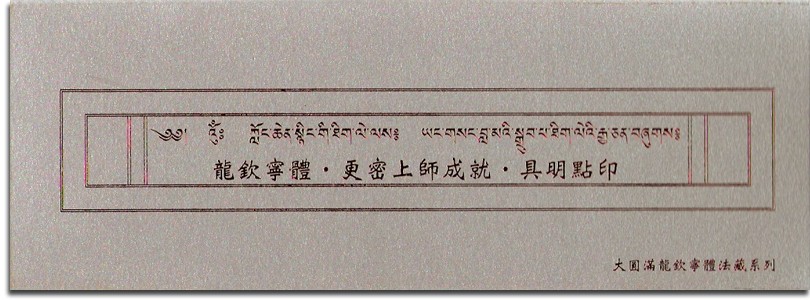 ༄༅། ཨོཾཿ ཀློང་ཆེན་སྙིང་གི་ཐིག་ལེ་ལས༔ ཡང་གསང་བླ་མའི་སྒྲུབ་པ་ཐིག་ལེའི་རྒྱ་ཅན་བཞུགས༔
龍欽寧體·更密上師成就·具明點印
大圓滿龍欽寧體法藏系列